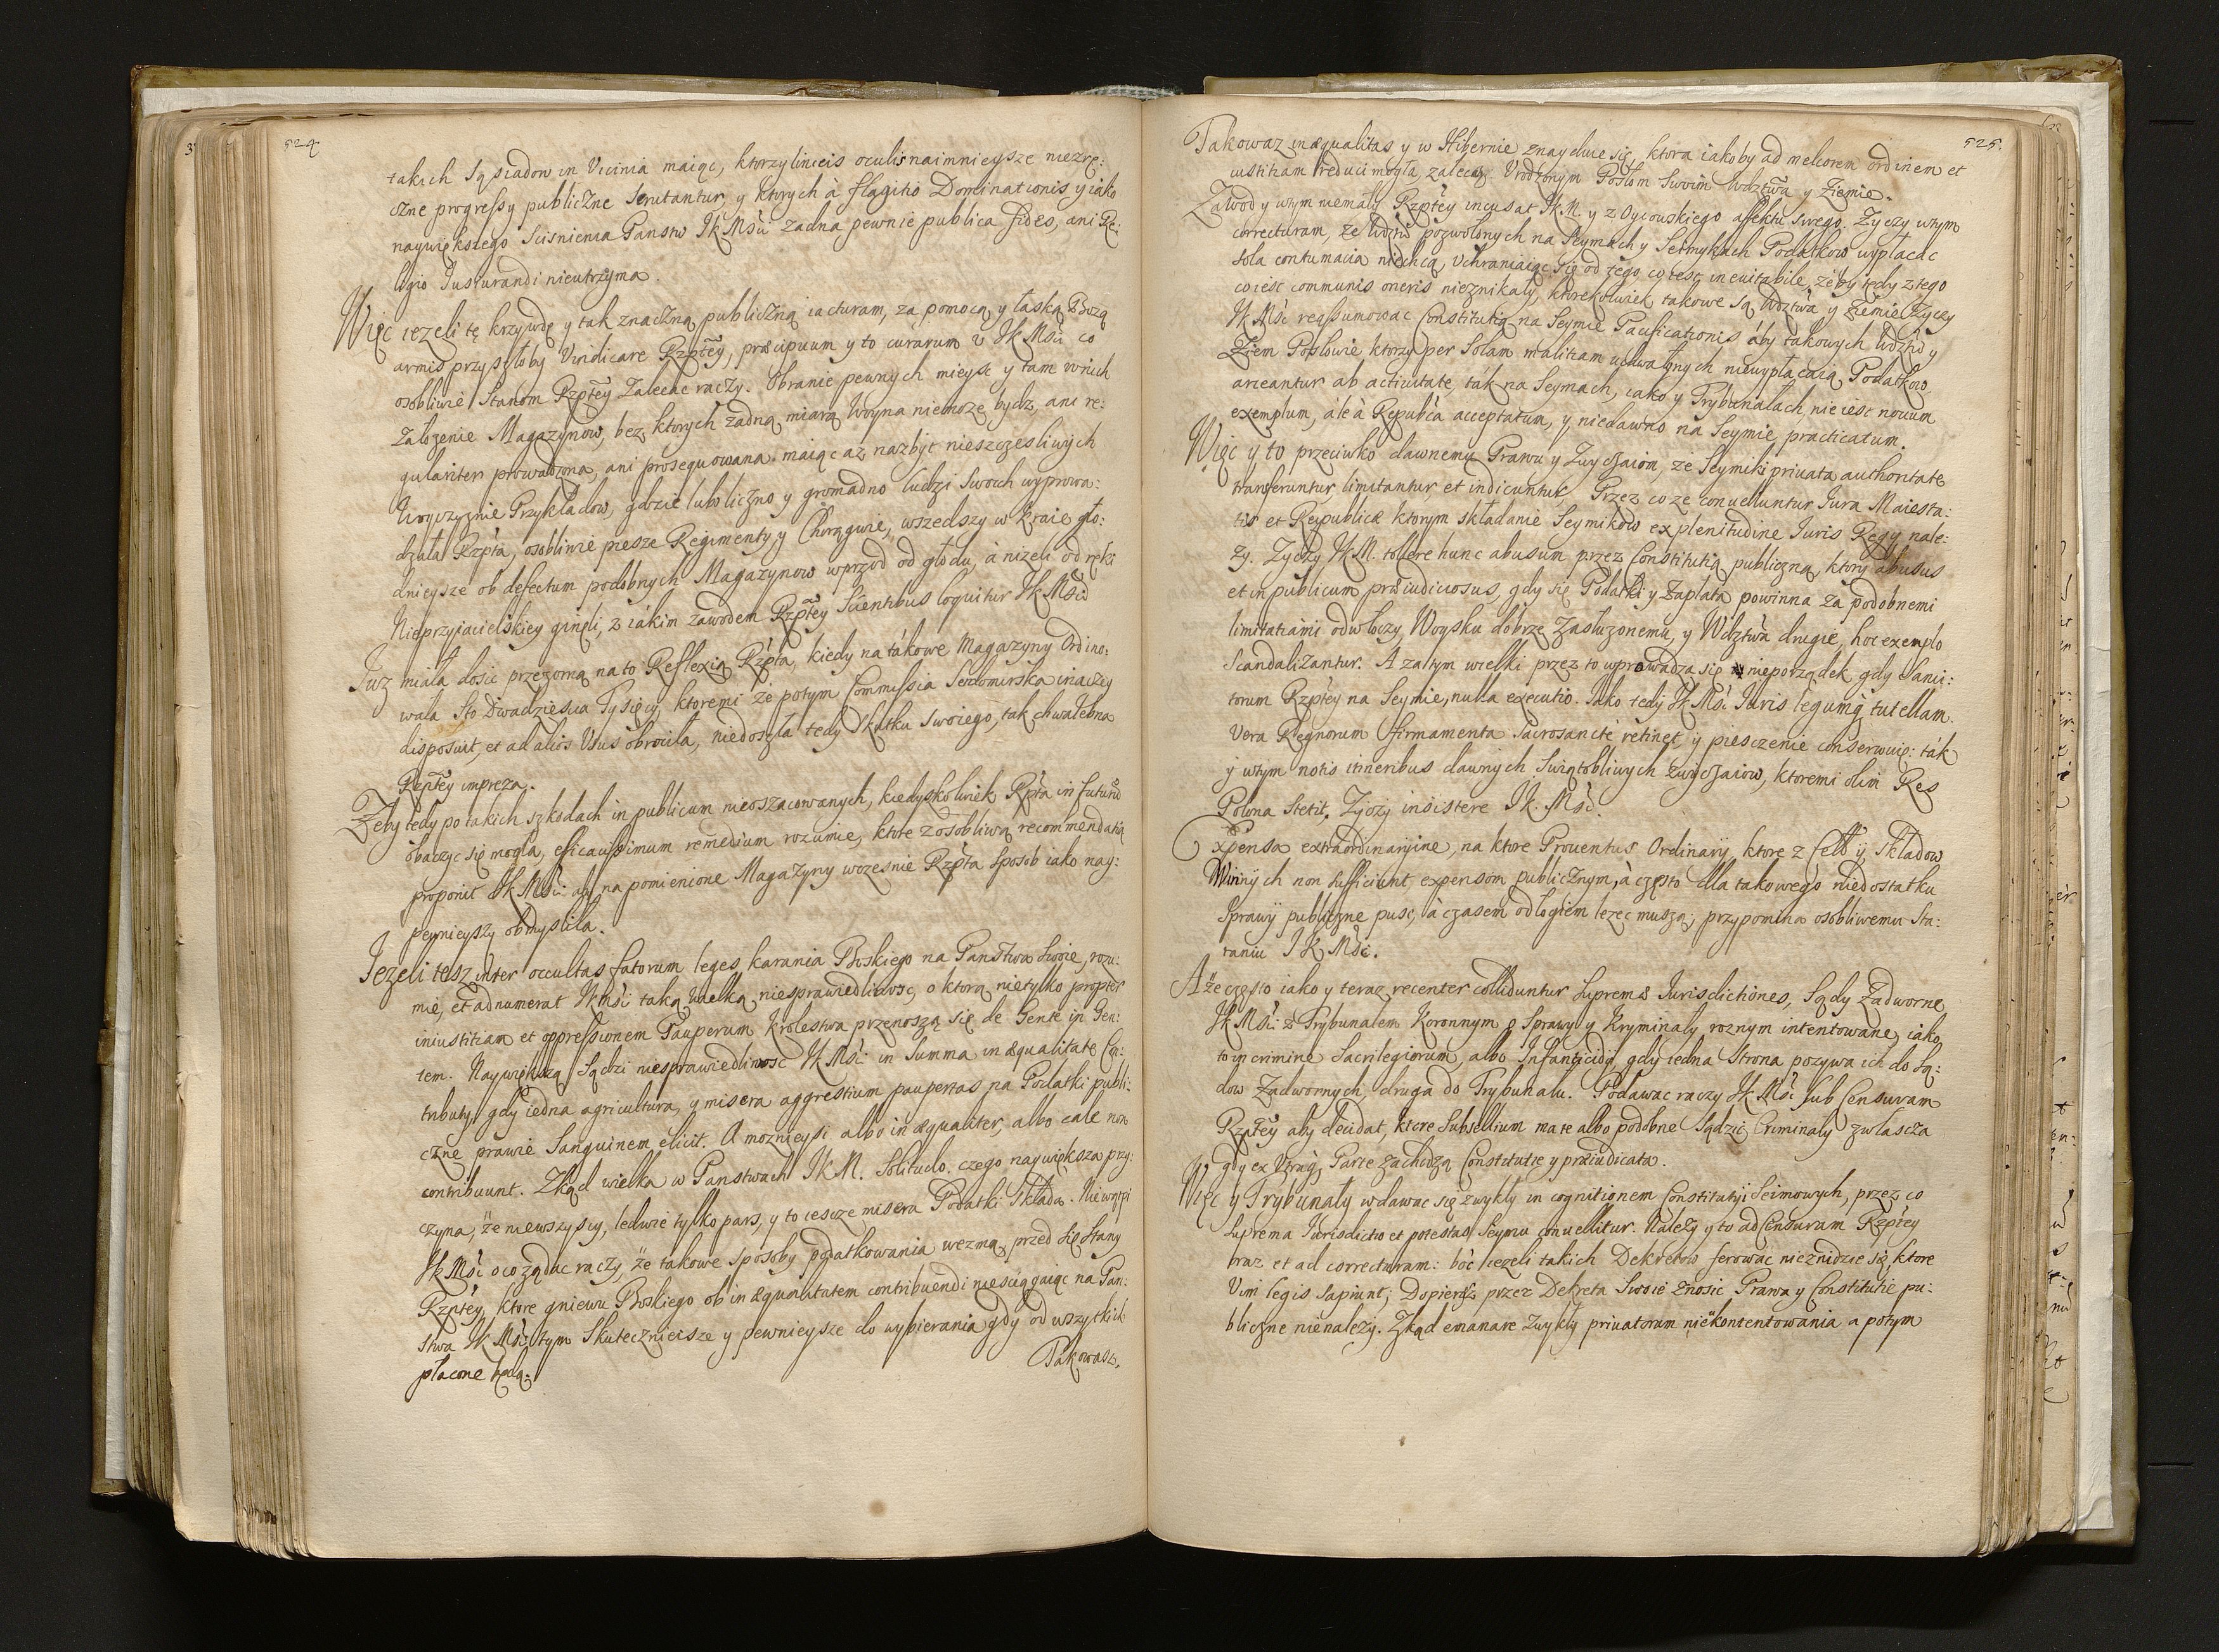 524
takich Sąsiadow in Vicinia maiąc, ktorzy linceis oculis naimnieysze niezrę:
czne progressy publiczne Scrutantur, y ktorych à flagitio Dominationis y iako
naywiększego Scisnienia Panstw JKMśći zadna pewnie publica fides, ani Re:
ligio Iusiurandi nieutrzyma.
Więc iezeli tę krzywdę y tak znaczną publiczną iacturam, za pomocą y łaską Bozą
armis przyszłoby Vindicare Rzptey, præcipuum y to curarum v JKMśći co
osobliwie Stanom Rzptey Zalecac raczy. Obranie pewnych mieysc y tam wnich
Załozenie Magazynow, bez ktorych zadną miarą Woyna niemoze bydz, ani re:
gulariter prowadzona, ani prosequowana. maiąc az nazbyt nieszczesliwych
Woyczyznie Przykładow, gdzie lubo liczno y gromadno ludzi Swoich wyprowa:
dzała Rzpta, osobliwie piesze Regimenty, y Chorągwie, wszedszy w kraie gło:
dnieysze ob defectum podobnych Magazynow wprzod od głodu, à nizeli od ręki
Nieprzyiacielskiey ginęli, z iákim zawodem Rzptey Scientibus loquitur JKMść
Juz miała dosic przezorną na to Reflexią Rzpta, kiedy na tákowe Magazyny Ordino:
wała Sto Dwadziescia Tysięcy, ktoremi ze potym Commissia Sendomirska inaczey
disposuit, et ad alios Usus obrociła, niedoszła tedy skutku swoiego, tak chwalebna
Rzptey impreza.
Zeby tedy po takich szkodach in publicum nieoszacowanych, kiedyskolwiek Rpta in futurum
obaczyc się mogła, efficacissimum remedium rozumie, ktore z osobliwą recommendatią
proponit JKMść: aby na pomienione Magazyny wczesnie Rzpta Sposob iako nay:
pewnieyszy obmysliła.
Jezeli tesz inter occultas fatorum leges karania Boskiego na Panstwa Swoie, rozu:
mie, et adnumerat JKMść taką wielką niesprawiedliwosc, o ktorą nietylko propter
iniustitiam et oppressionem Pauperum Krolestwa przenoszą się de Gente in Gen:
tem. Naywiększą Sądzi niesprawiedliwosc JKMść in Summa inæqualitate Con:
tributy, gdy iedna agricultura, y misera aggrestium paupertas na Podatki publi:
czne prawie Sanguinem elicit. A moznieysi albo inæqualiter, albo cale non
contribuunt. Zkąd wielka w Panstwach JKM. Solitudo, czego naywiększa przy:
czyna, że niewszyscy, ledwie tylko pars, y to iescze misera Podatki składa. Niewątpi
JKMść o co ządac raczy, że takowe sposoby podatkowania wezmą przed się Stany
Rzptey, ktore gniewu Boskiego ob inæqualitatem contribuendi niesciągaiąc na Pan:
stwa JKMśći, tym Skutecznieisze y pewnieysze do wybierania gdy od wszytkich
płacone będą.
Takowasz.
525.
Takowaz inæqualitas y w Hibernie znayduie się, ktora iakoby ad meliorem ordinem et
iustitiam reduci mogła, zalecą Urodzonym Posłom Swoim Wdztwa y Ziemie.
Zawod y wtym niemały Rzptey incusat JKM. y z Oycowskiego affektu swego. Zyczy wtym
correcturam, że Wdztw pozwolonych na Seymach y Seimykach Podatkow wypłacac
Sola contumacia niechcą, uchraniaiąc się od tego co iest inevitabile, zeby tedy z tego
co iest communis oneris nieznikały, ktorekolwiek takowe są Wdztwa y Ziemie Zyczy
JKMść reassumowac Constitutią na Seymie Pacificationis áby takowych Wdztw y
Ziem Posłowie, ktorzy per Solam malitiam uchwalonych niewypłacaią Podatkow
arceantur ab activitate, ták na Seymach, iako y Trybunałach, nie iest novum
exemplum, ále à Republica acceptatum, y niedawno na Seymie practicatum.
Więc y to przeciwko dawnemu Prawu y Zwyczaiom, że Seymiki privata authoritate
transferuntur, limitantur et indicuntur, Przez co ze convelluntur Jura Maiesta:
tis et Reipublicæ ktorym składanie Seymikow ex plenitudine Iuris Regy nale:
zy. Zyczy JKM. tollere hunc abusum przez Constitutią publiczną, ktory abusus
et in publicum præiudiciosus, gdy się Podatki y Zapłata powinna za podobnemi
limitatiami odwłoczy, Woysku dobrze Zasłuzonemu, y Wdztwa drugie, hoc exemplo
Scandalizantur. A zatym wielki przez to wprowadza się nieporządek gdy Sanci:
torum Rzptey na Seymie, nulla executio. Jako tedy JKMść Juris legumq tutellam
Vera Regnorum firmamenta Sacrosancte retinet, y piesczenie conserwuie: ták
y wtym notis itineribus dawnych Swiątobliwych zwyczaiow, ktoremi olim Res
Polona Stetit, Zyczy insistere JK. Mść.
Expensa extraordinaryine, na ktore Proventus Ordinaryi, ktore z Cełł y składow
Winnych non sufficiunt, expensom publicznym, à często dla takowego niedostatku
Sprawy publiczne pusc, à czasem odłogiem lezec muszą; przypomina osobliwemu Sta:
raniu JKMść.
A że często iako y teraz recenter colliduntur Supremæ Iurisdictiones, Sądy Zadworne
JKMśći z Trybunałem Koronnym o Sprawy y Kryminały roznym intentowane, iako
to in crimine Sacrilegiorum, albo Infanticidy, gdy iedna Strona pozywa ich do Są:
dow Zadwornych, druga do Trybunału. Podawac raczy JKMść Sub Censuram
Rzptey aby decidat, ktore Subsellium ma te albo podobne Sądzic Criminały zwłascza
gdy ex Utraq Parte zachodzą Constitutie y præiudicata.
Więc y Trybunały wdawac się zwykły in cognitionem Constitutyi Seimowych, przez co
Suprema Iurisdictio et potestas Seymu convellitur. Nalezy y to ad Censuram Rzptey
oraz et ad correcturam: boć iezeli takich Dekretow ferowac nieznidzie się, ktore
Vim legis Sapiunt; Dopieroz przez Dekreta Swoie znosic Prawa y Constitutie pu:
bliczne nienalezy. Zkąd emanare zwykły privatorum niekontentowania a potym